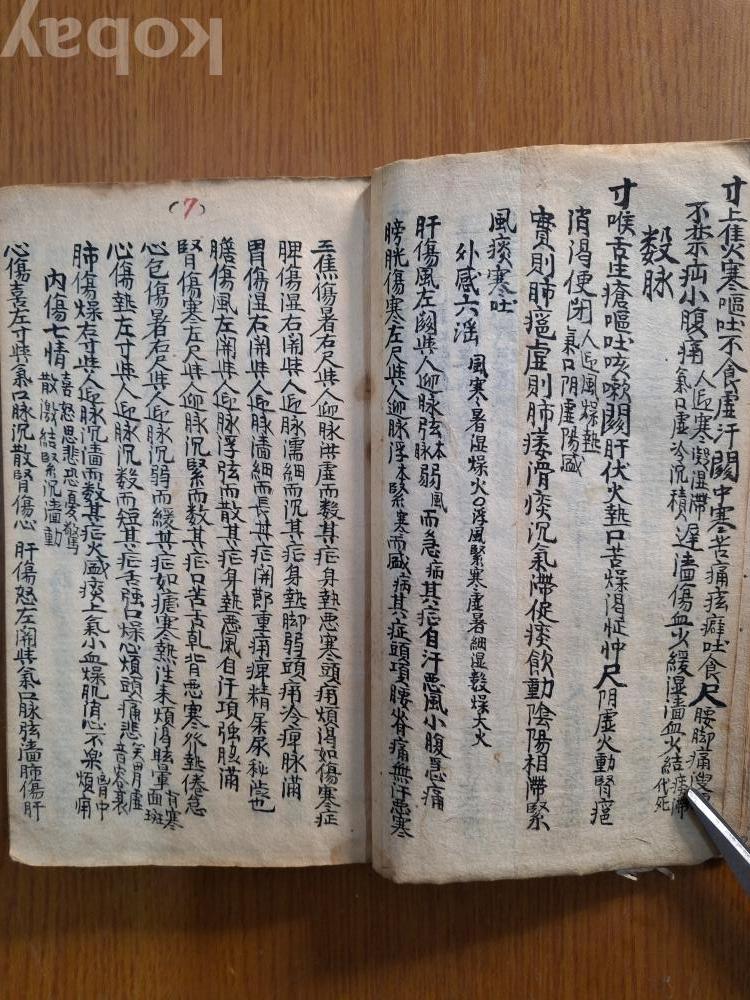 kobay
寸上焦火寒嘔吐不食虛汗関中寒苦痛痃癖吐食尺腰脚痛溲
不禁疝小腹痛人迎寒湿滯氣口虛冷沉積遅濇傷血火緩湿濇血火結痰滯代死
數脉
寸喉舌生瘡嘔吐咳嗽関肝伏火熱口苦燥渴怔忡尺阴虛火動腎
消渴便閉人迎風燥熱氣口阴虛陽盛
實則肺癰虛則肺痿滑痰沉氣滯促痰飮動陰陽相滯緊
風痰寒吐
外感六淫 風寒暑湿燥火○浮風緊寒虛暑細湿數燥大火
肝傷風左関與人迎脉弦本弱風而急病其症自汗悪風小腹急痛
膀胱傷寒左尺與人迎脉浮本緊寒而盛病其症頭項腰脊痛無汗悪寒
(7)
三焦傷暑右尺與人迎脉洪虛而數其症身熱悪寒頭痛煩渴如傷寒症
脾傷湿右関與人迎脉濡細而沉其症身熱脚弱頭痛冷痺脉滿
胃傷湿右関與人迎脉濇細而長其症関節重痛痺精屎尿秘澁也
膽傷風左関與人迎脉浮弦而散其症身熱悪風自汗項強脇滿
腎傷寒左尺與人迎脉沉緊而數其症口苦舌乾背悪寒外熱倦怠
心包傷暑右尺與人迎脉沉弱而緩其症如瘧寒熱往來煩渴眩暈面班有寒
心傷熱左寸與人迎脉沉數而短其症舌強口燥心煩頭痛悲笑胃虛音衰
肺傷燥右寸與人迎脉沉濇而數其症火盛痰上氣小血燥肌消心不樂胃中煩痛
內傷七情 喜怒思悲恐憂驚 散激結緊沉濇動
心傷喜左寸與氣口脉沉散腎傷心 肝傷怒左関與氣口脉弦濇肺傷肝